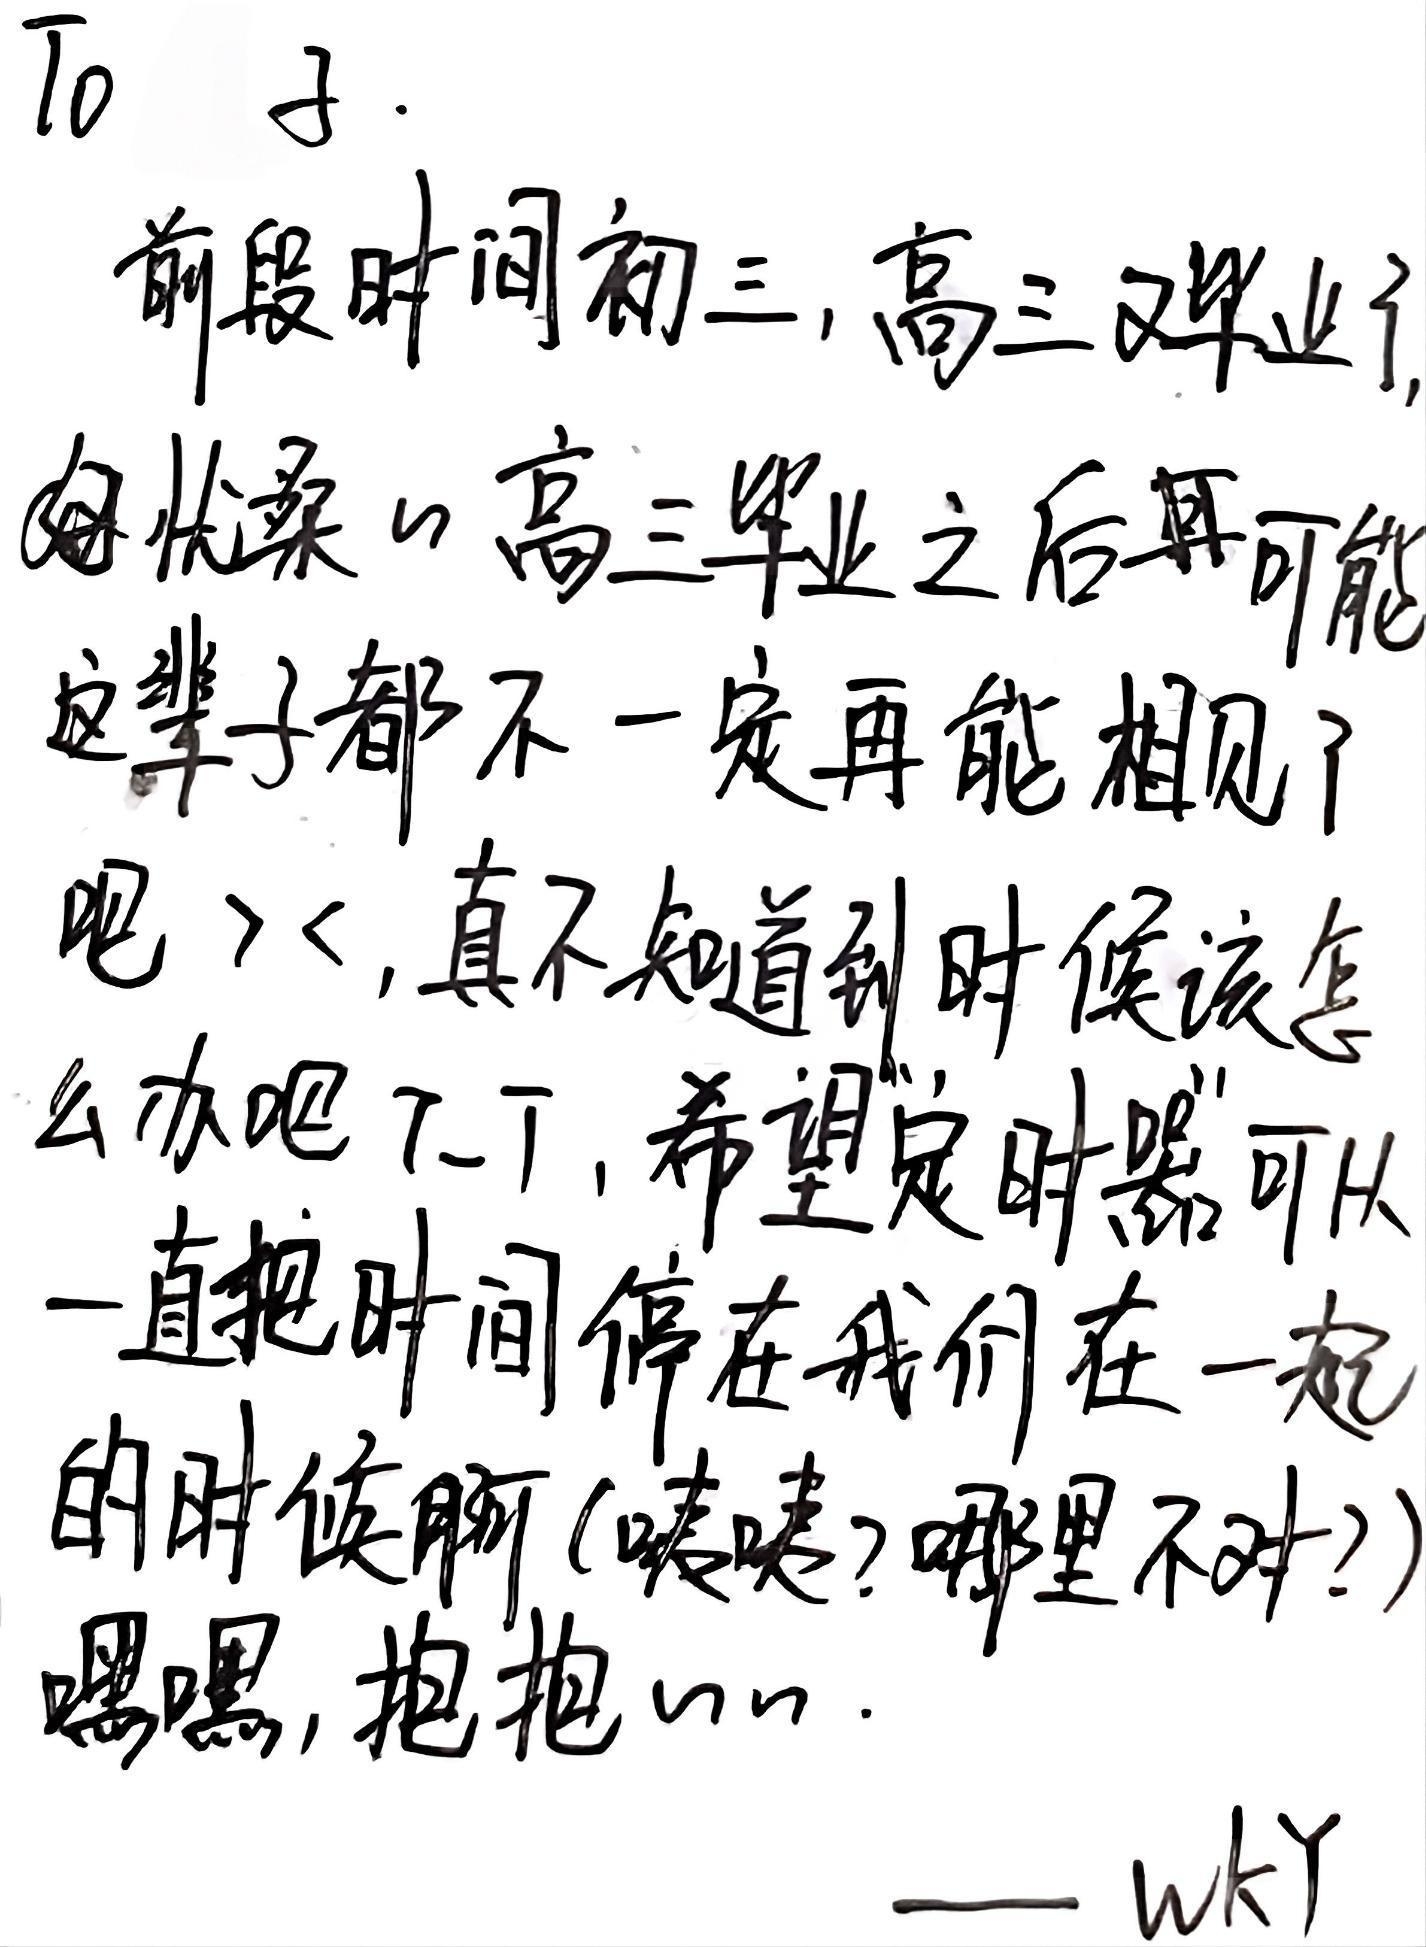 To 子.
前段时间初三,高三又毕业了,
好忧桑nn高三毕业之后再可能
这辈子都不一定再能相见了
吧 > <,真不知道到时候该怎
么办吧 T_T,希望“定时器”可以
一直把时间停在我们在一起
的时候啊(咦咦?哪里不对?)
嘿嘿,抱抱nnn.
—— WKY